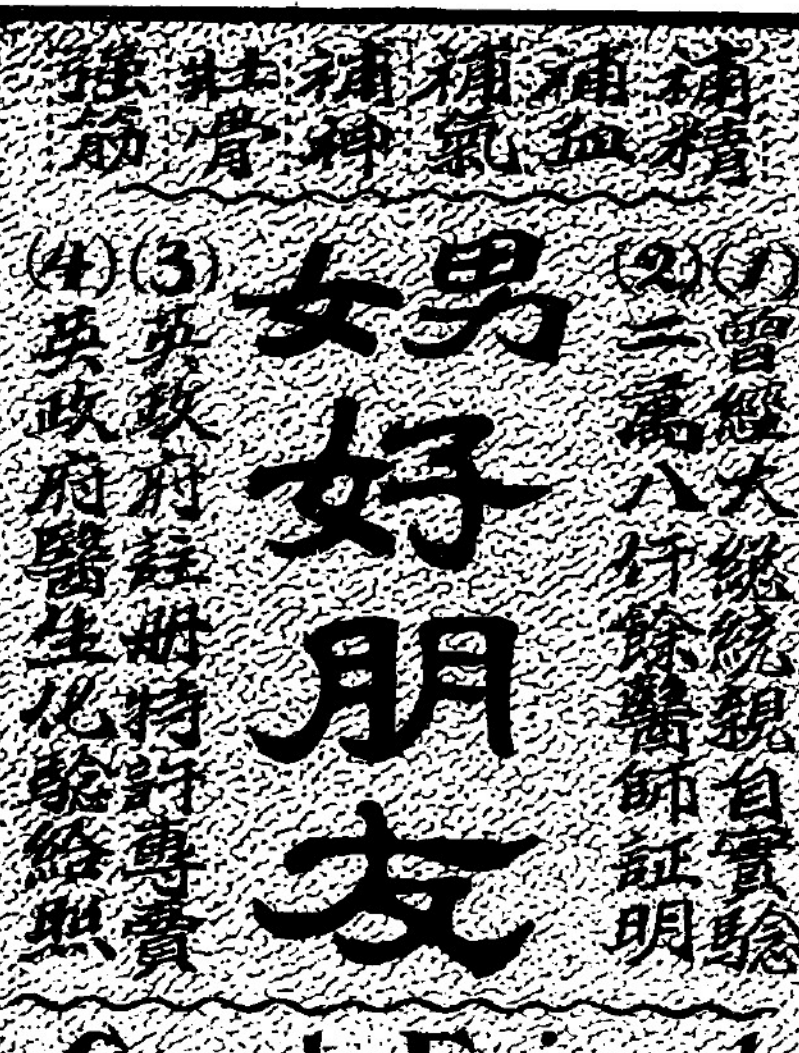 補精
補血
補氣
補神
壯骨
強筋
(1)曾經大總統親自實驗
(2)二萬八仟餘醫師証明
男女
好
朋
友
(3)英政府註册特許專賣
(4)英政府醫生化驗給照